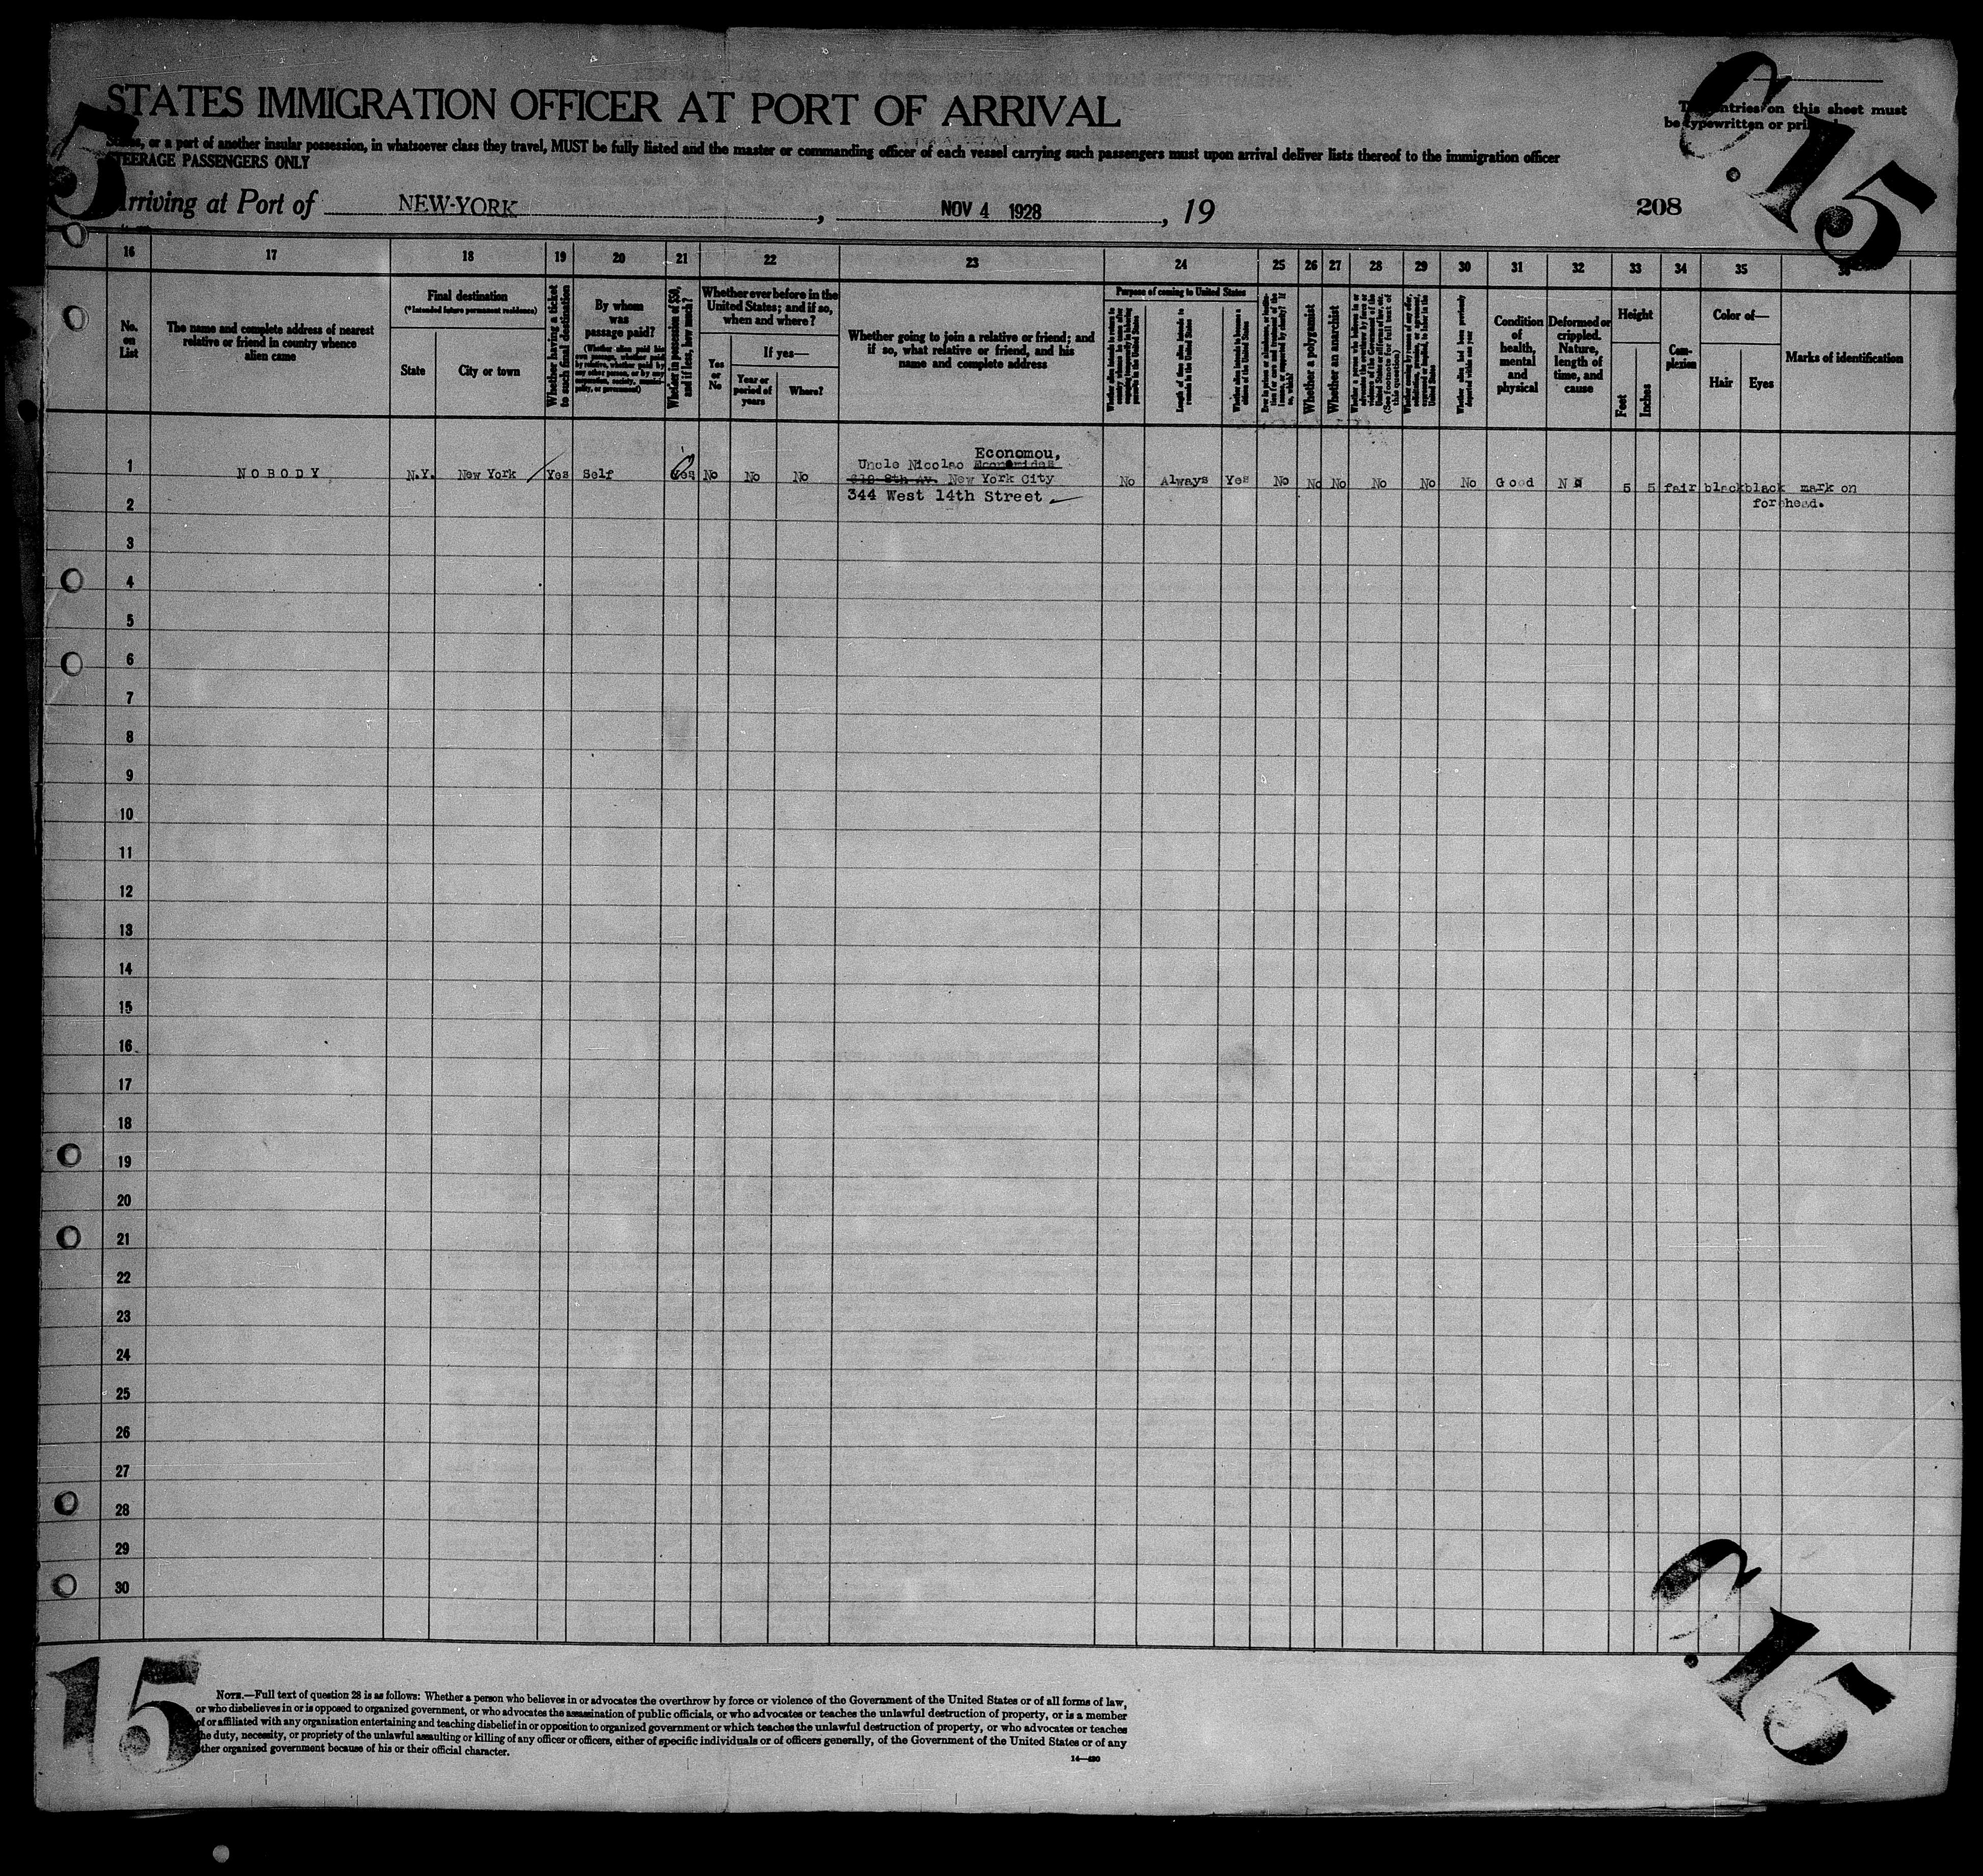 STATES IMMIGRATION OFFICER AT PORT OF ARRIVAL
The entries on this sheet must
be typewritten or printed
or a part of another insular possession, in whatsoever class they travel, MUST be fully listed and the master or commanding officer of each vessel carrying such passengers must upon arrival deliver lists thereof to the immigration officer
STEERAGE PASSENGERS ONLY
Arriving at Port of NEW-YORK, NOV 4 1928, 19
208
C.15
5
16 17 18 19 20 21 22 23 24 25 26 27 28 29 30 31 32 33 34 35 36
No. on List
The name and complete address of nearest relative or friend in country whence alien came
Final destination
(*Intended future permanent residence)
State
City or town
Whether having a ticket to such final destination
By whom was passage paid?
(Whether alien paid his own passage, whether paid by relative, whether paid by any other person, or by any corporation, society, municipality, or government)
Whether in possession of $50, and if less, how much?
Whether ever before in the United States; and if so, when and where?
Yes or No
If yes—
Year or period of years
Where?
Whether going to join a relative or friend; and if so, what relative or friend, and his name and complete address
Purpose of coming to United States
Length of time alien intends to remain in the United States
Whether alien intends to become a citizen of the United States
Whether a polygamist
Whether an anarchist
Whether alien had been previously deported within one year
Condition of health, mental and physical
Deformed or crippled. Nature, length of time, and cause
Height
Feet
Inches
Complexion
Color of—
Hair
Eyes
Marks of identification
1 NOBODY N.Y. New York Yes Self Yes No No No Uncle Nicolao Economides Economou, New York City No Always Yes No No No No No No Good No 5 5 fair black black mark on
344 West 14th Street
forehead.
2
3
4
5
6
7
8
9
10
11
12
13
14
15
16
17
18
19
20
21
22
23
24
25
26
27
28
29
30
15
C.15
NOTE.—Full text of question 28 is as follows: Whether a person who believes in or advocates the overthrow by force or violence of the Government of the United States or of all forms of law,
or who disbelieves in or is opposed to organized government, or who advocates the assassination of public officials, or who advocates or teaches the unlawful destruction of property, or is a member
of or affiliated with any organization entertaining and teaching disbelief in or opposition to organized government or which teaches the unlawful destruction of property, or who advocates or teaches
the duty, necessity, or propriety of the unlawful assaulting or killing of any officer or officers, either of specific individuals or of officers generally, of the Government of the United States or of any
other organized government because of his or their official character.
14—430